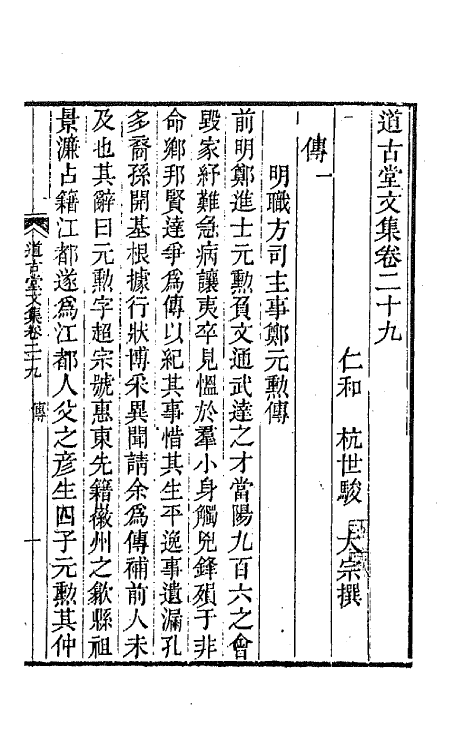 道古堂文集卷二十九
仁和 杭世駿 大宗撰
傳一
明職方司主事鄭元勲傳
前明鄭進士元勲負文通武達之才當陽九百六之會
毀家紓難急病讓夷卒見慍於羣小身觸兇鋒殞于非
命鄉邦賢達爭爲傳以紀其事惜其生平逸事遺漏孔
多裔孫開基根據行狀博采異聞請余爲傳補前人未
及也其辭曰元勲字超宗號惠東先籍徽州之歙縣祖
景濂占籍江都遂爲江都人父之彦生四子元勲其仲
道古堂文集卷二十九 傳 一